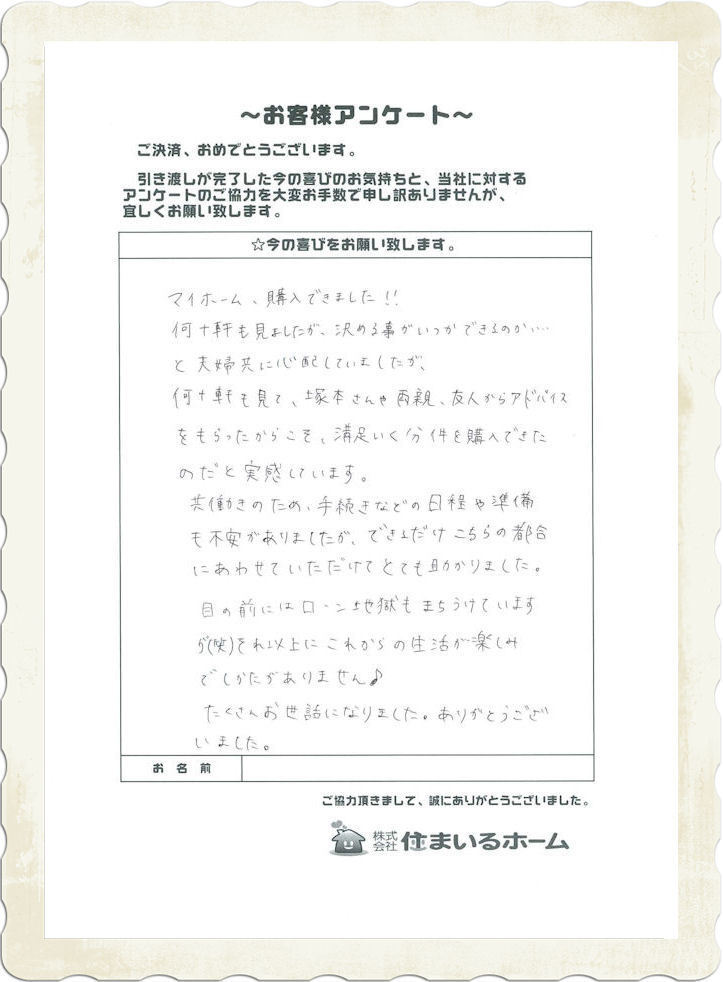 ～お客様アンケート～
ご決済、おめでとうございます。
引き渡しが完了した今の喜びのお気持ちと、当社に対する
アンケートのご協力を大変お手数で申し訳ありませんが、
宜しくお願い致します。
☆今の喜びをお願い致します。
マイホーム、購入できました!!
何十軒も見ましたが、決める事がいつかできるのか…
と夫婦共に心配していましたが、
何十軒も見て、塚本さんや両親、友人からアドバイス
をもらったからこそ、満足いく物件を購入できた
のだと実感しています。
共働きのため、手続きなどの日程や準備
も不安がありましたが、できるだけこちらの都合
にあわせていただけてとても助かりました。
目の前にはローン地獄もまちうけています
が(笑)それ以上にこれからの生活が楽しみ
でしかたがありません♪
たくさんお世話になりました。ありがとうござい
いました。
お名前
ご協力頂きまして、誠にありがとうございました。
株式会社 住まいるホーム